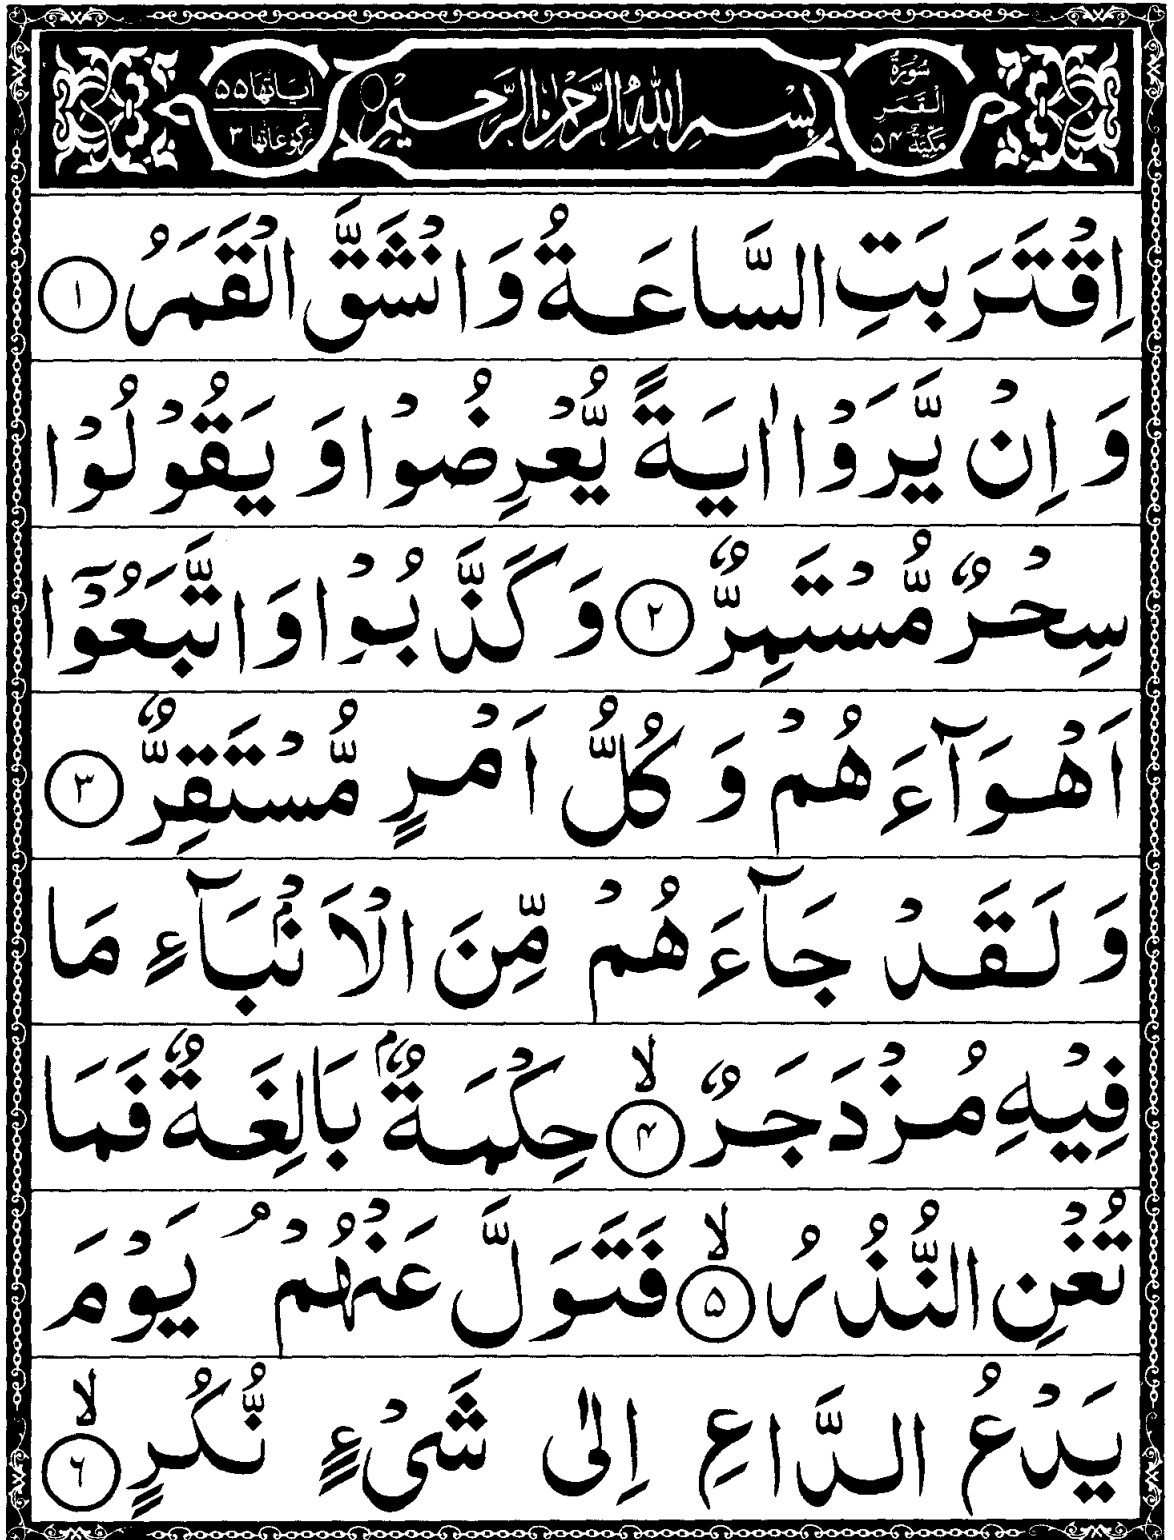 سُوْرَةُ الْقَمَرِ مَكِّيَّةٌ ۵۴
بِسْمِ اللّٰهِ الرَّحْمٰنِ الرَّحِيْمِ
اٰيَاتُهَا ۵۵ رُكُوْعَاتُهَا ۳
اِقْتَرَبَتِ السَّاعَةُ وَ انْشَقَّ الْقَمَرُ ۱
وَ اِنْ يَّرَوْا اٰيَةً يُّعْرِضُوْا وَ يَقُوْلُوْا
سِحْرٌ مُّسْتَمِرٌّ ۲ وَ كَذَّبُوْا وَ اتَّبَعُوْۤا
اَهْوَآءَهُمْ وَ كُلُّ اَمْرٍ مُّسْتَقِرٌّ ۳
وَ لَقَدْ جَآءَهُمْ مِّنَ الْاَنْۢبَآءِ مَا
فِيْهِ مُزْدَجَرٌ ۙ۴ حِكْمَةٌۢ بَالِغَةٌ فَمَا
تُغْنِ النُّذُرُ ۙ۵ فَتَوَلَّ عَنْهُمْ ۘ يَوْمَ
يَدْعُ الدَّاعِ اِلٰى شَيْءٍ نُّكُرٍ ۙ۶